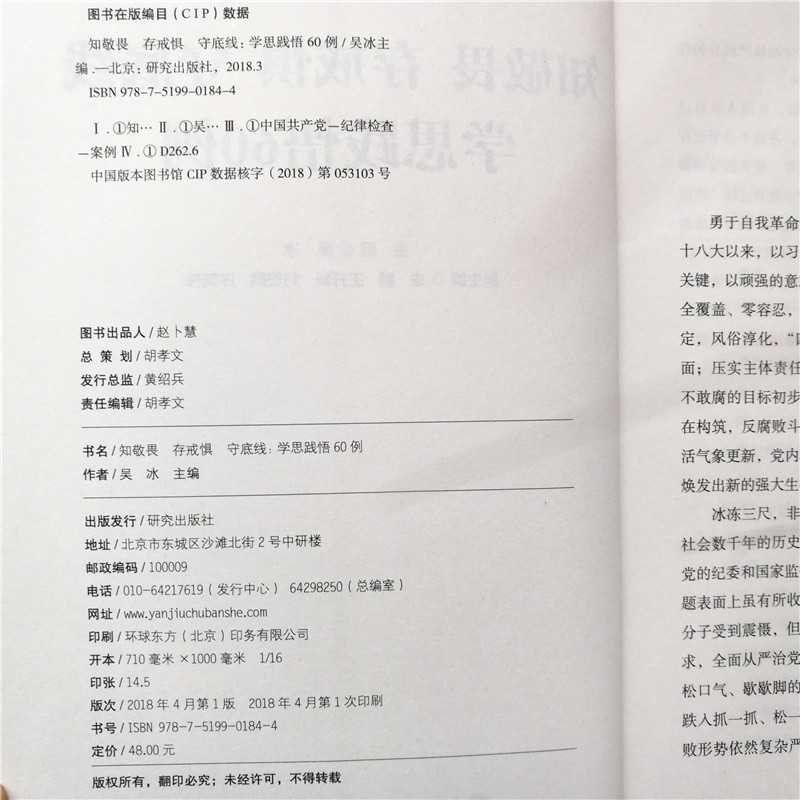 图书在版编目（CIP）数据
知敬畏 存戒惧 守底线：学思践悟 60 例 / 吴冰主
编 .—北京：研究出版社，2018.3
ISBN 978-7-5199-0184-4
Ⅰ．①知… Ⅱ．①吴… Ⅲ．①中国共产党—纪律检查
—案例 Ⅳ．① D262.6
中国版本图书馆 CIP 数据核字（2018）第 053103 号
图书出品人 / 赵卜慧
总 策 划 / 胡孝文
发行总监 / 黄绍兵
责任编辑 / 胡孝文
书名 / 知敬畏 存戒惧 守底线：学思践悟 60 例
作者 / 吴 冰 主编
出版发行 / 研究出版社
地址 / 北京市东城区沙滩北街 2 号中研楼
邮政编码 / 100009
电话 / 010-64217619（发行中心） 64298250（总编室）
网址 / www.yanjiuchubanshe.com
印刷 / 环球东方（北京）印务有限公司
开本 / 710 毫米 ×1000 毫米 1/16
印张 / 14.5
版次 / 2018 年 4 月第 1 版 2018 年 4 月第 1 次印刷
书号 / ISBN 978-7-5199-0184-4
定价 / 48.00 元
版权所有，翻印必究；未经许可，不得转载
勇于自我革命
十八大以来，以习
关键，以顽强的意
全覆盖、零容忍，
定，风俗淳化，“
面；压实主体责任
不敢腐的目标初步
在构筑，反腐败斗
活气象更新，党内
焕发出新的强大生
冰冻三尺，非
社会数千年的历史
党的纪委和国家监
题表面上虽有所收
分子受到震慑，但
求，全面从严治党
松口气、歇歇脚的
跌入抓一抓、松一
败形势依然复杂严